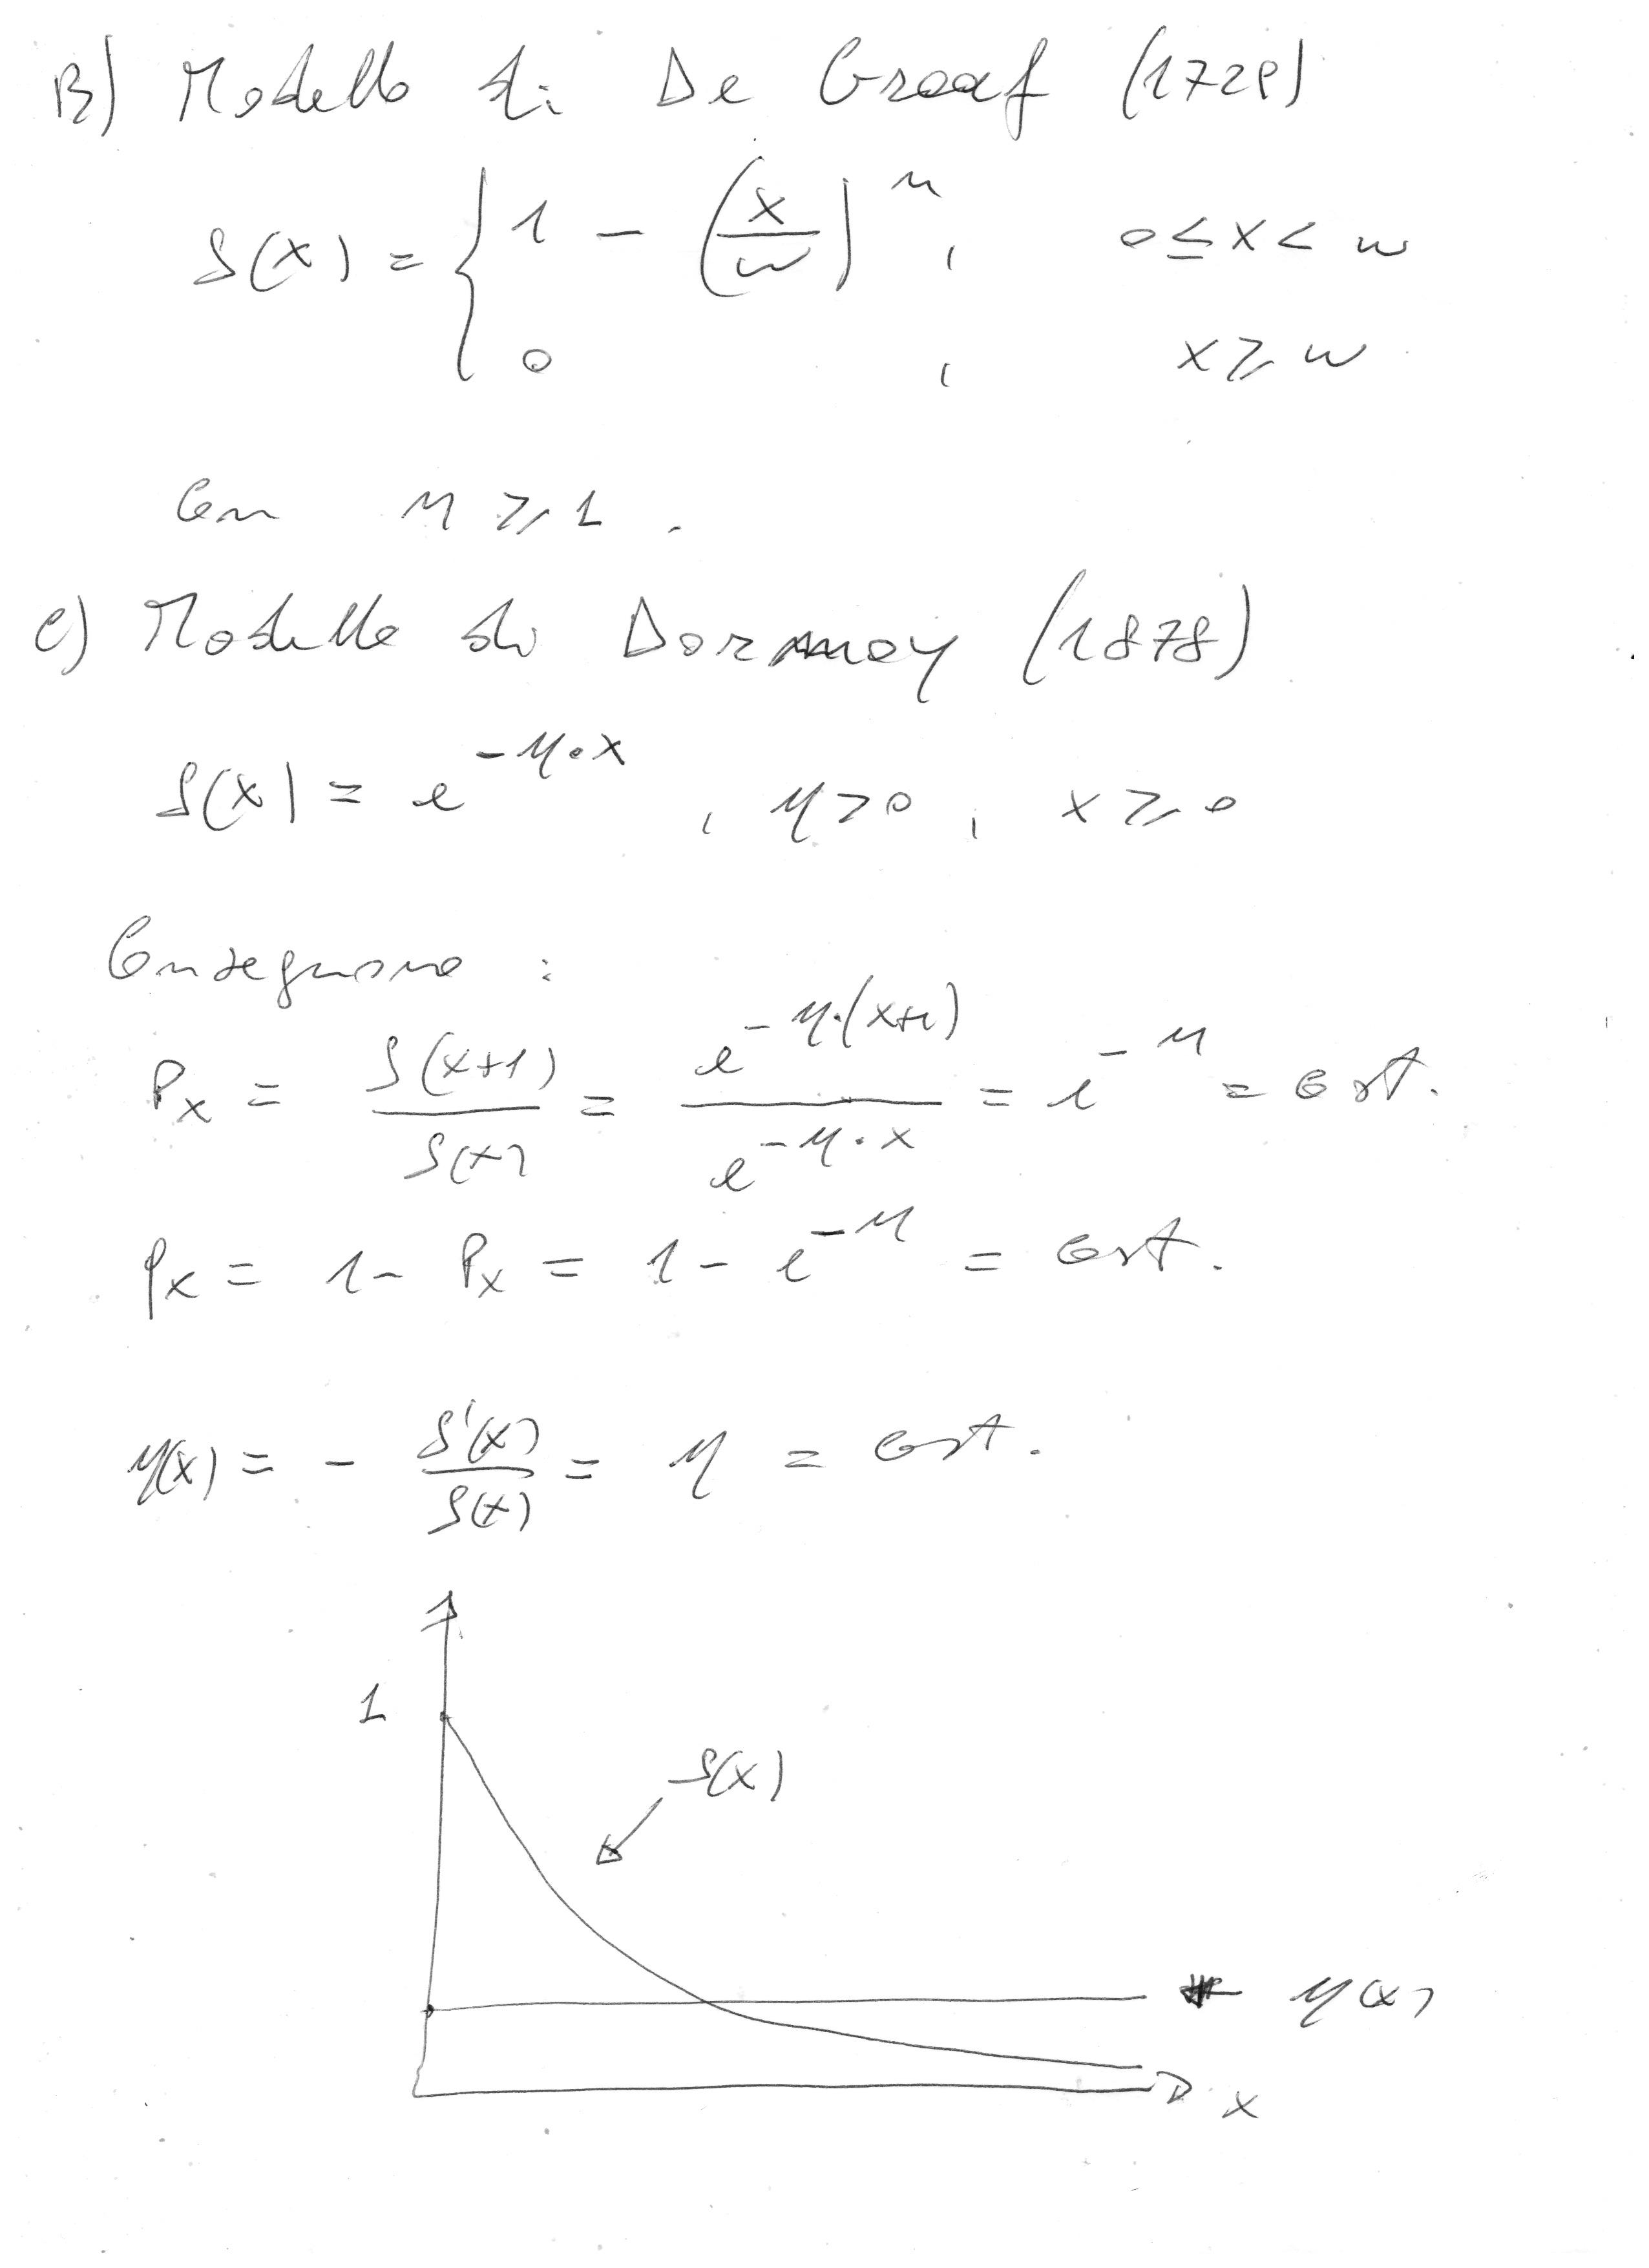 B) Modello di De Graaf (1729)
S(x) = { 1 - (x/ω)^n , 0 ≤ x < ω
0 , x ≥ ω
Con n ≥ 1 .
C) Modello di Dormoy (1878)
S(x) = e^{-μ·x} , μ > 0 , x ≥ 0
Conseguono :
Px = S(x+1)/S(x) = e^{-μ·(x+1)}/e^{-μ·x} = e^{-μ} = cost.
qx = 1 - Px = 1 - e^{-μ} = cost.
μ(x) = - S'(x)/S(x) = μ = cost.
1
S(x)
μ(x)
x